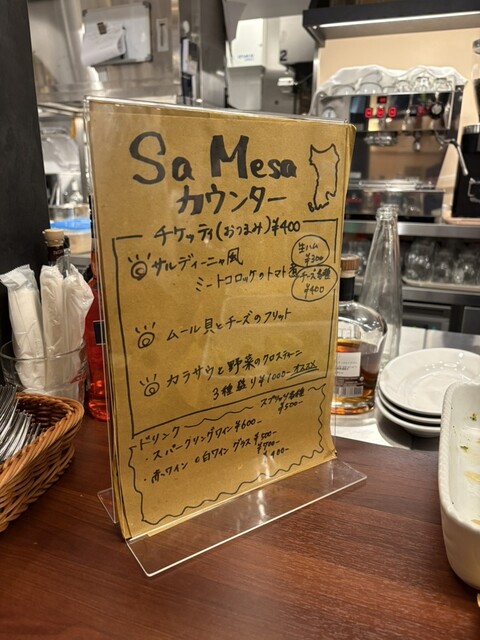 Sa Mesa
カウンター
チケッティ(おつまみ)¥400
サルディーニャ風
ミートコロッケのトマト煮
生ハム
¥300
チーズ各種
¥400
ムール貝とチーズのフリット
カラザウと野菜のクロスティーニ
3種盛り¥1000- オススメ
ドリンク
スプリッツ各種
¥500-
・スパークリングワイン ¥600-
・赤ワイン
白ワイン グラス ¥500-